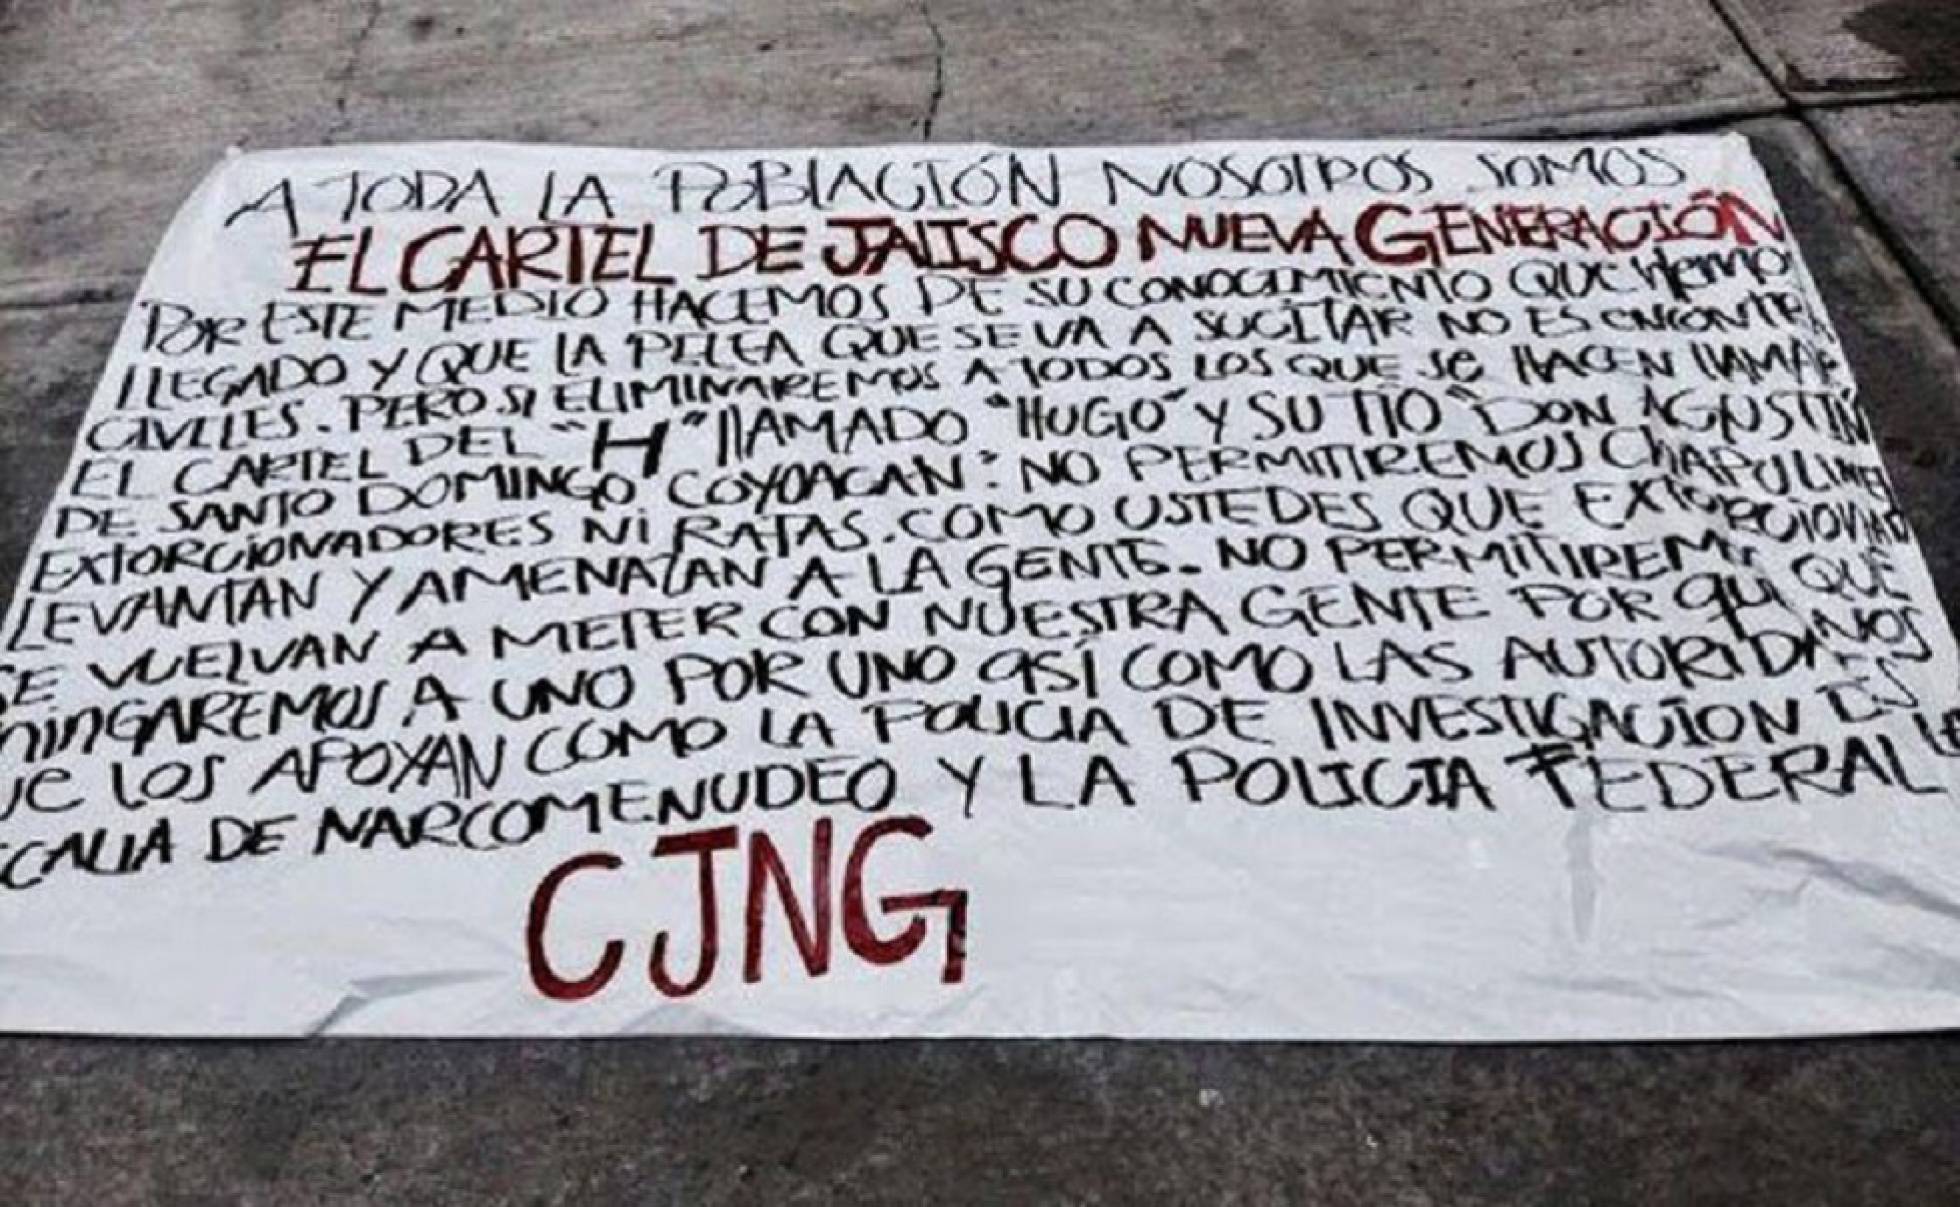 A TODA LA POBLACIÓN NOSOTROS SOMOS
EL CARTEL DE JALISCO NUEVA GENERACIÓN
POR ESTE MEDIO HACEMOS DE SU CONOCIMIENTO QUE HEMO
LLEGADO Y QUE LA PELEA QUE SE VA A SUCITAR NO ES ENCONTRA
CIVILES. PERO SI ELIMINAREMOS A TODOS LOS QUE SE HACEN LLAMAR
EL CARTEL DEL "H" LLAMADO "HUGO" Y SU TIO "DON AGUSTIN
DE SANTO DOMINGO COYOACAN: NO PERMITIREMOS CHAPULINES
EXTORCIONADORES NI RATAS. COMO USTEDES QUE EXTORCIONAN
LEVANTAN Y AMENAZAN A LA GENTE. NO PERMITIREMOS QUE
SE VUELVAN A METER CON NUESTRA GENTE POR QUE
MINGAREMOS A UNO POR UNO ASÍ COMO LAS AUTORIDA
UE LOS APOYAN COMO LA POLICIA DE INVESTIGACION
CALIA DE NARCOMENUDEO Y LA POLICIA FEDERAL
CJNG